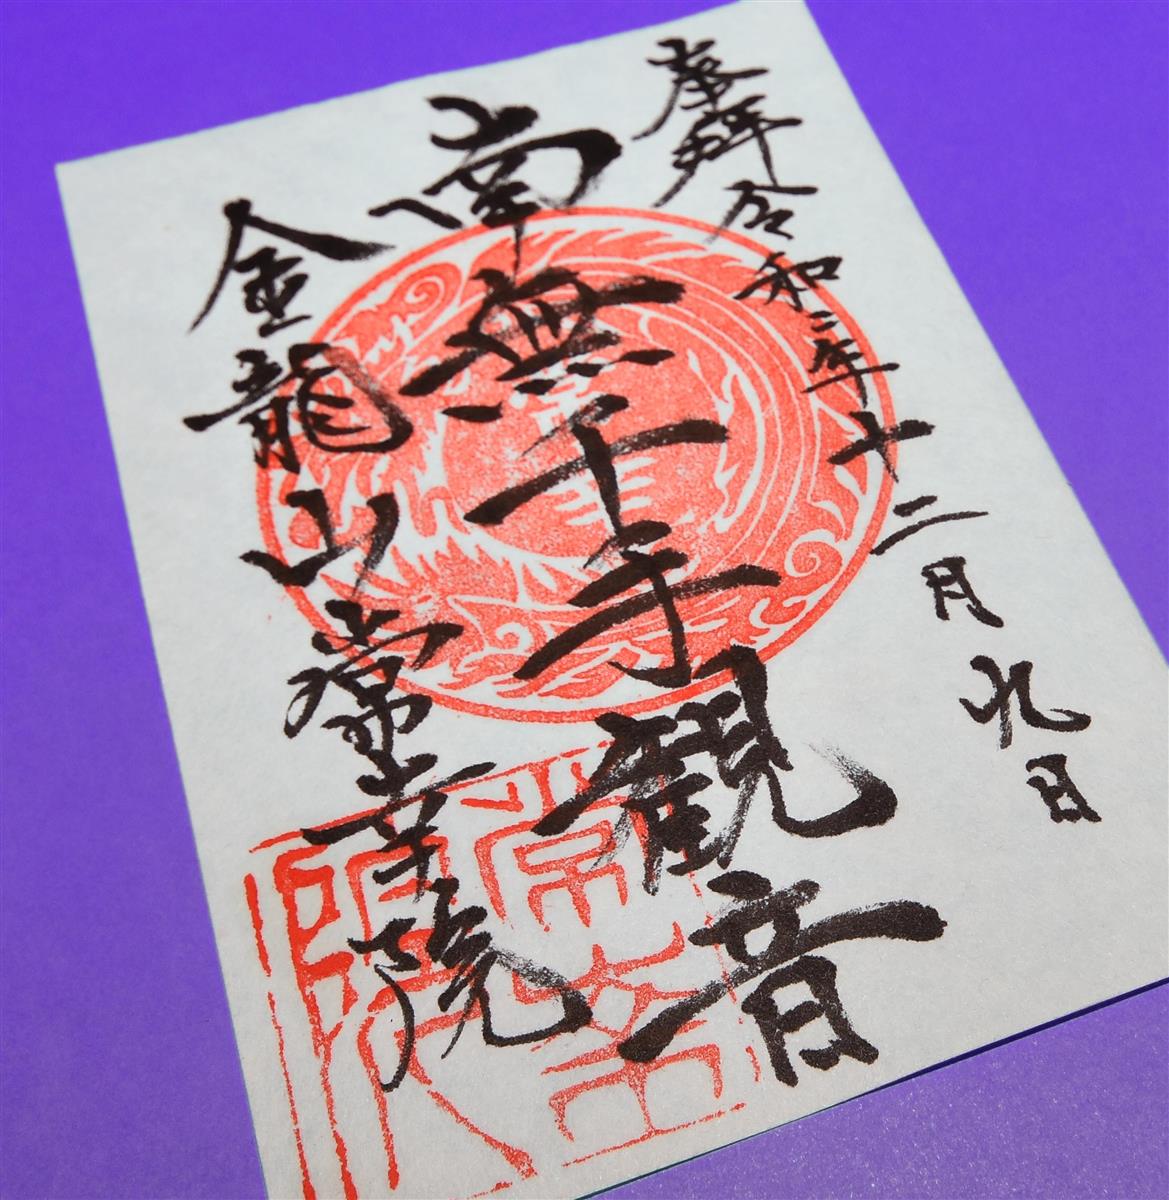 奉拝 令和二年十二月九日
南無千手観音
金龍山常幸院